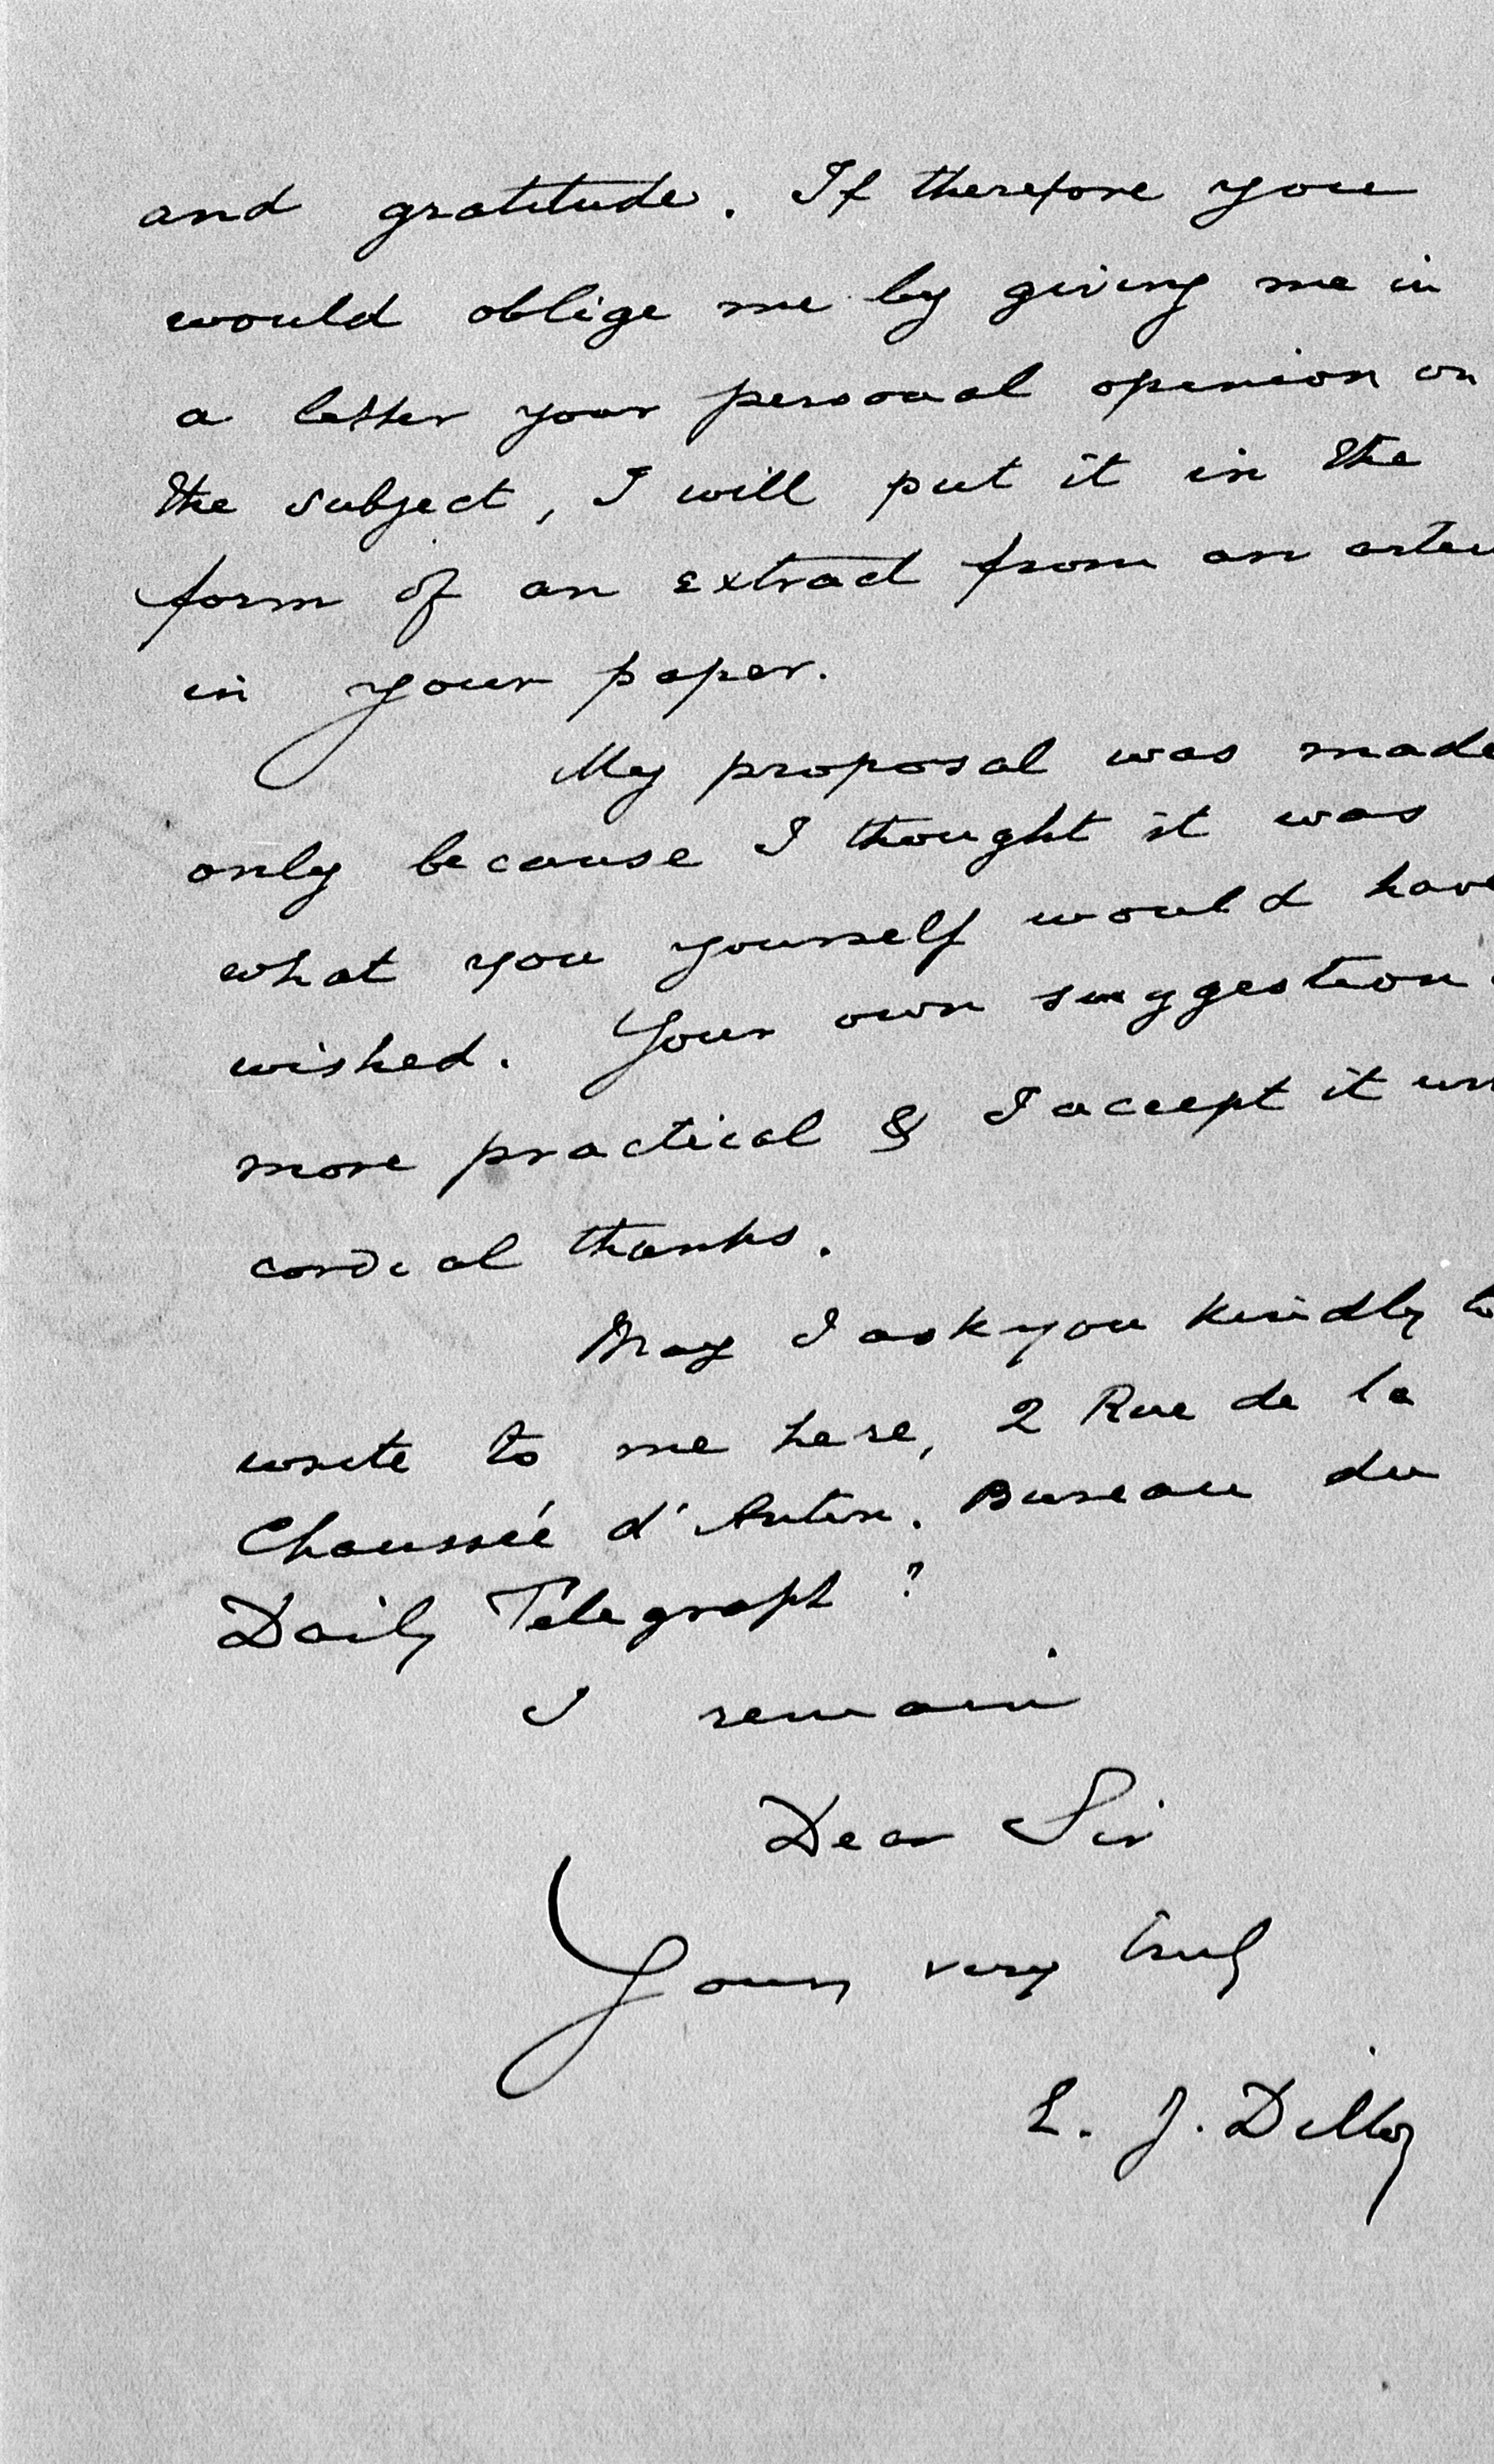 and gratitude. If therefore you
would oblige me by giving me in
a letter your personal opinion on
the subject, I will put it in the
form of an extract from an
in your paper.
My proposal was made
only because I thought it was
what you yourself would have
wished. Your own suggestion
more practical & I accept it
cordial thanks.
May I ask you kindly to
write to me here, 2 Rue de la
Chaussée d'Antin. Bureau du
Daily Telegraph ?
I remain
Dear Sir
Yours very truly
E. J. Dillon